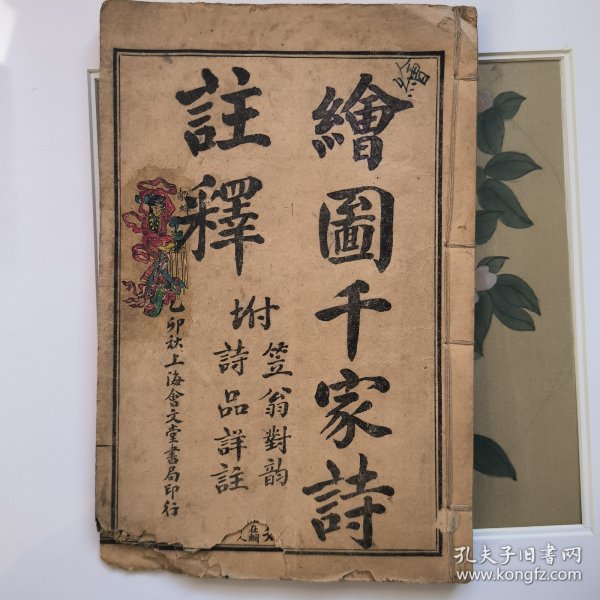 繪圖千家詩
註釋
坿
笠翁對韵
詩品詳註
乙卯秋上海會文堂書局印行
繪
孔夫子旧书网
www.kongfz.com